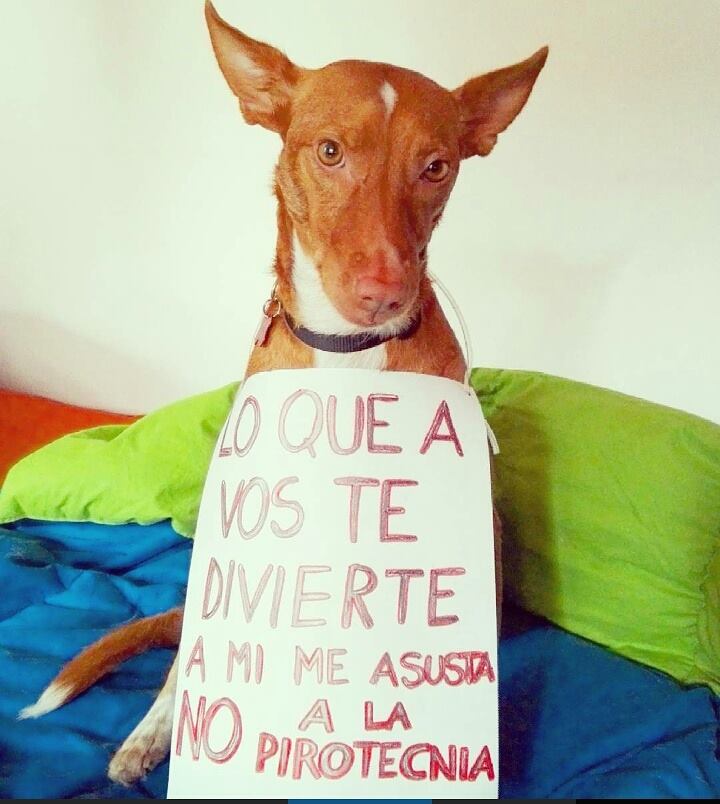 LO QUE A
VOS TE
DIVIERTE
A MI ME ASUSTA
NO A LA
PIROTECNIA